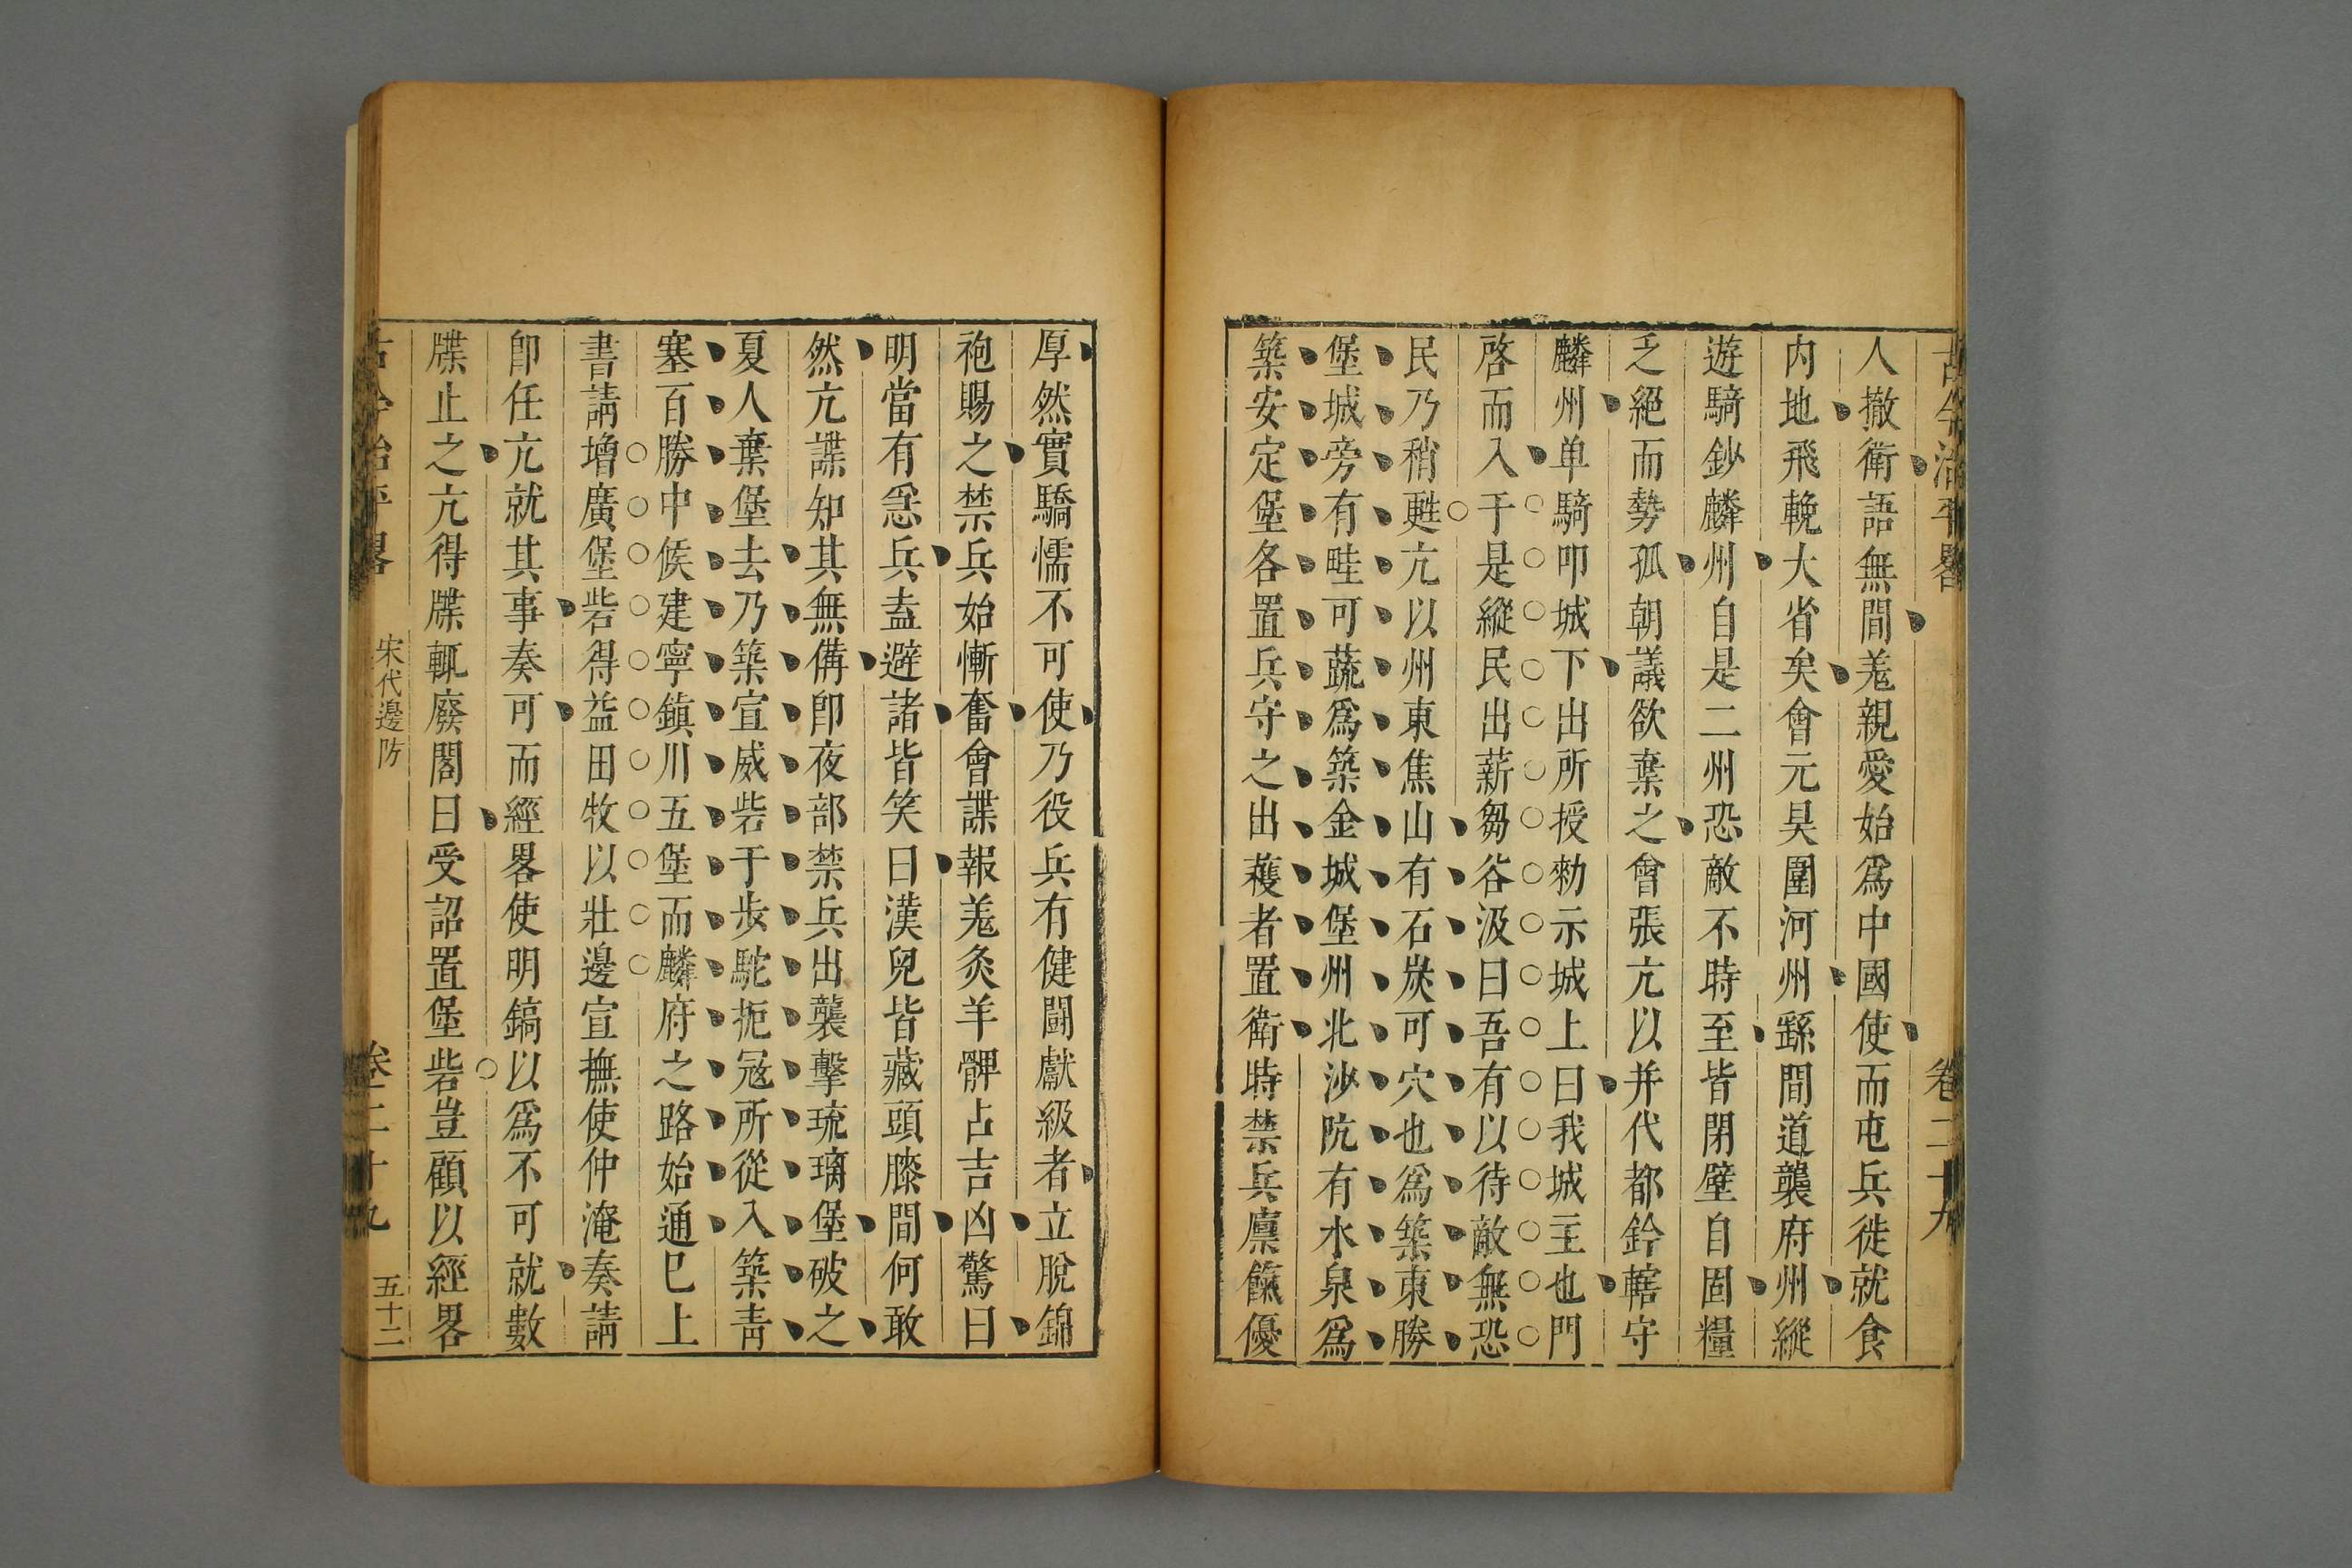 古今治平畧 卷二十九
人撤衛語無間羗親愛始爲中國使而屯兵徙就食
内地飛輓大省矣會元昊圍河州繇間道襲府州縱
遊騎鈔麟州自是二州恐敵不時至皆閉壁自固糧
乏絕而勢孤朝議欲棄之會張亢以并代都鈐轄守
麟州单騎叩城下出所授勑示城上曰我城主也門
啓而入于是縱民出薪芻谷汲曰吾有以待敵無恐
民乃稍甦亢以州東焦山有石炭可穴也爲築東勝
堡城旁有畦可蔬爲築金城堡州北沙阬有水泉爲
築安定堡各置兵守之出穫者置衛時禁兵廪餼優
厚然實驕懦不可使乃役兵有健鬪獻級者立脫錦
袍賜之禁兵始慚奮會諜報羗灸羊髀占吉凶驚曰
明當有急兵盍避諸皆笑曰漢兒皆藏頭膝間何敢
然亢諜知其無備卽夜部禁兵出襲擊琉璃堡破之
夏人棄堡去乃築宣威砦于步駝扼寇所從入築青
塞百勝中候建寧鎮川五堡而麟府之路始通巳上
書請增廣堡砦得益田牧以壯邊宣撫使仲淹奏請
卽任亢就其事奏可而經畧使明鎬以爲不可就數
牒止之亢得牒輒廢閣曰受詔置堡砦豈顧以經畧
古今治平畧 宋代邊防 卷二十九 五十二